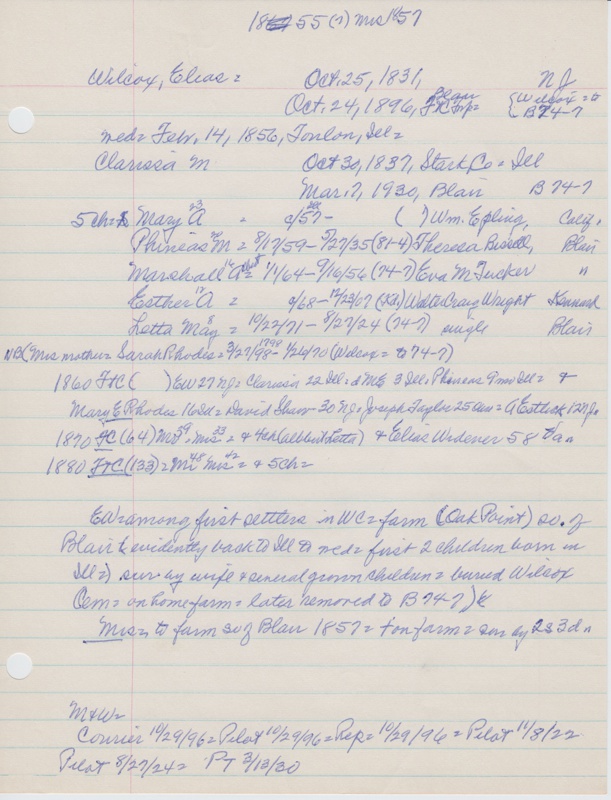 18 55 (?) Mrs 1857
Wilcox, Elias = Oct. 25, 1831, NJ
Oct. 24, 1896, Blair FC Twp= {Wilcox = to B 74-7
med= Feb. 14, 1856, Toulon, Ill=
Clarissa M. Oct 30, 1837, Stark Co = Ill
Mar. 7, 1930, Blair B 74-7
5 ch= Mary A 23 = c/57- ( ) Wm. Epling, Calif.
Phineas M = 8/17/59 - 5/27/35 (81-4) Theresa Bissell, Blair
Marshall A = 1/1/64 - 9/16/56 (74-7) Eva M Tucker "
Esther A 17 = c/68 - 12/23/07 (Kd) Walter Craig Wright Kennard
Letta May 8 = 10/22/71 - 8/27/24 (74-7) single Blair
NB (Mrs mother = Sarah Rhodes = 3/27/1798 - 1/26/70 (Wilcox = to 74-7)
1860 FtC ( ) EW 27 NJ = Clarissa 22 Ill = d ME 3 Ill = Phineas 9 mo Ill = &
Mary E Rhodes 16 Ind = David Shaw 30 NJ = Joseph Taylor 25 = A 12 NJ =
1870 FC (64) Mr 39 = Mrs 33 = & 4ch (all but Letta) & Elias Widener 58 Va n
1880 FtC (133) = Mr 48 Mrs 42 = & 5ch =
EW = among first settlers in WC = farm (Oak Point) so. of
Blair & evidently back to Ill to med = first 2 children born in
Ill =) sur. by wife & several grown children = buried Wilcox
Cem = on home farm = later removed to B 74-7)
Mrs = to farm so of Blair 1857 = + on farm = sur by 2s 3d n
M & W =
Courier 10/29/96 = Pilot 10/29/96 = Rep = 10/29/96 = Pilot 11/8/22
Pilot 8/27/24 = PT 3/13/30